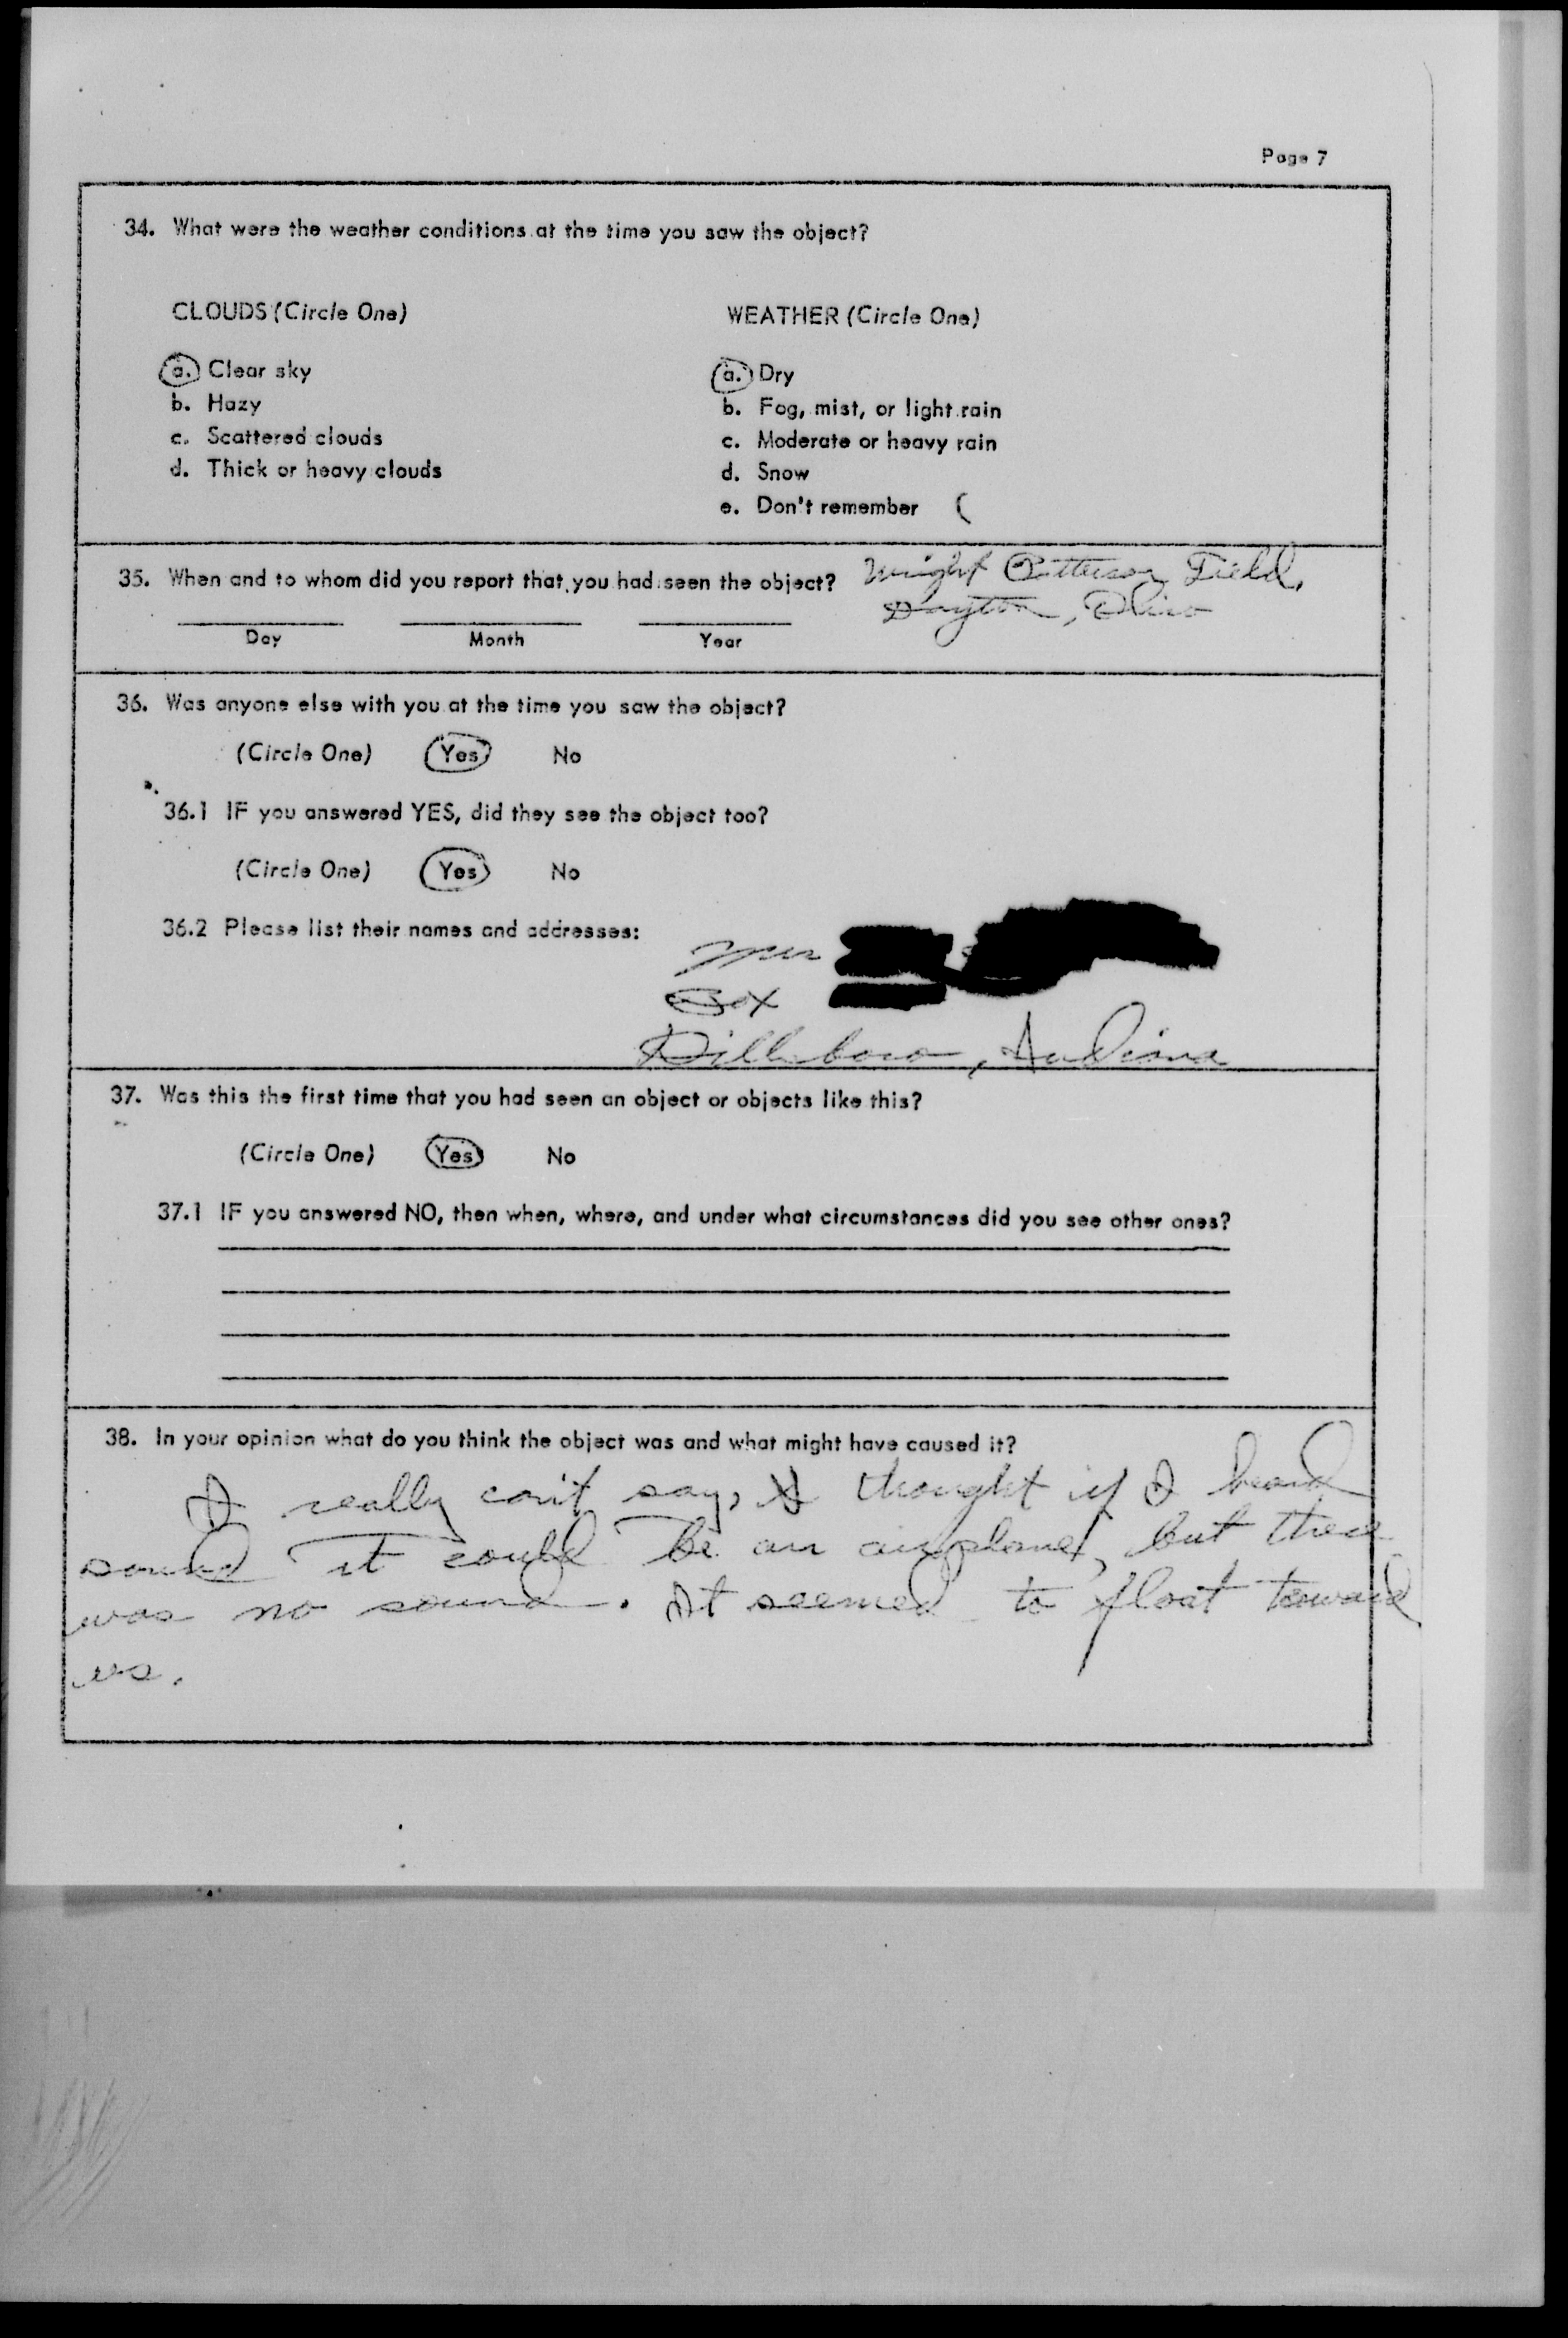 Page 7
34. What were the weather conditions at the time you saw the object?
CLOUDS (Circle One)
a. Clear sky
b. Hazy
c. Scattered clouds
d. Thick or heavy clouds
WEATHER (Circle One)
a. Dry
b. Fog, mist, or light rain
c. Moderate or heavy rain
d. Snow
e. Don't remember (
35. When and to whom did you report that you had seen the object? Wright Patterson Field,
Dayton, Ohio
Day Month Year
36. Was anyone else with you at the time you saw the object?
(Circle One) Yes No
36.1 IF you answered YES, did they see the object too?
(Circle One) Yes No
36.2 Please list their names and addresses:
Box
Dillsboro, Indiana
37. Was this the first time that you had seen an object or objects like this?
(Circle One) Yes No
37.1 IF you answered NO, then when, where, and under what circumstances did you see other ones?
38. In your opinion what do you think the object was and what might have caused it?
I really can't say, I thought if I heard
sound it could be an airplane, but there
was no sound. It seemed to float toward
us.